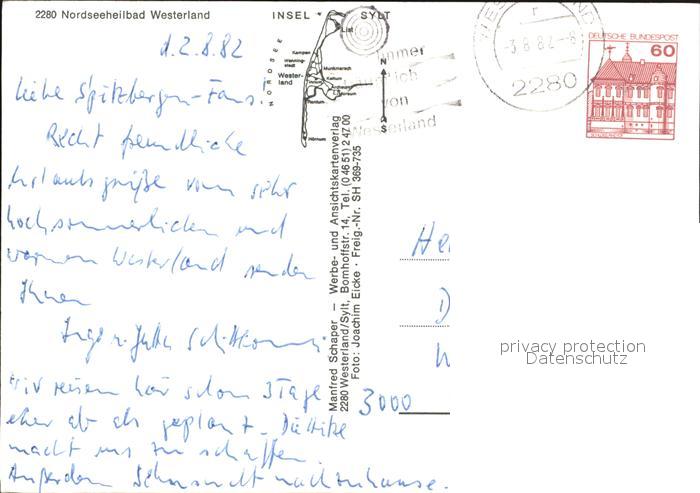 2280 Nordseeheilbad Westerland
INSEL SYLT
NORDSEE
List
Kampen
Wenning-
stedt
Munkmarsch
Wester-
land
Keitum
Morsum
Rantum
Hörnum
N
S
immer
von
Westerland
-3.8.82-8
2280
DEUTSCHE BUNDESPOST
60
d. 2.8.82
Liebe Spitzbergen-Fans!
Recht freundliche
Urlaubsgrüße vom sehr
hochsommerlichen und
warmen Westerland senden
Ihnen
Inge u. Jutta
Wir reisen hier schon 3 Tage
eher ab als geplant. Die Hitze
macht uns zu schaffen.
Außerdem Sehnsucht nach zuhause.
Manfred Schaper — Werbe- und Ansichtskartenverlag
2280 Westerland/Sylt, Bomhoffstr. 14, Tel. (0 46 51) 2 47 00
Foto: Joachim Eicke · Freig.-Nr. SH 369-735
He
D
3000
privacy protection
Datenschutz